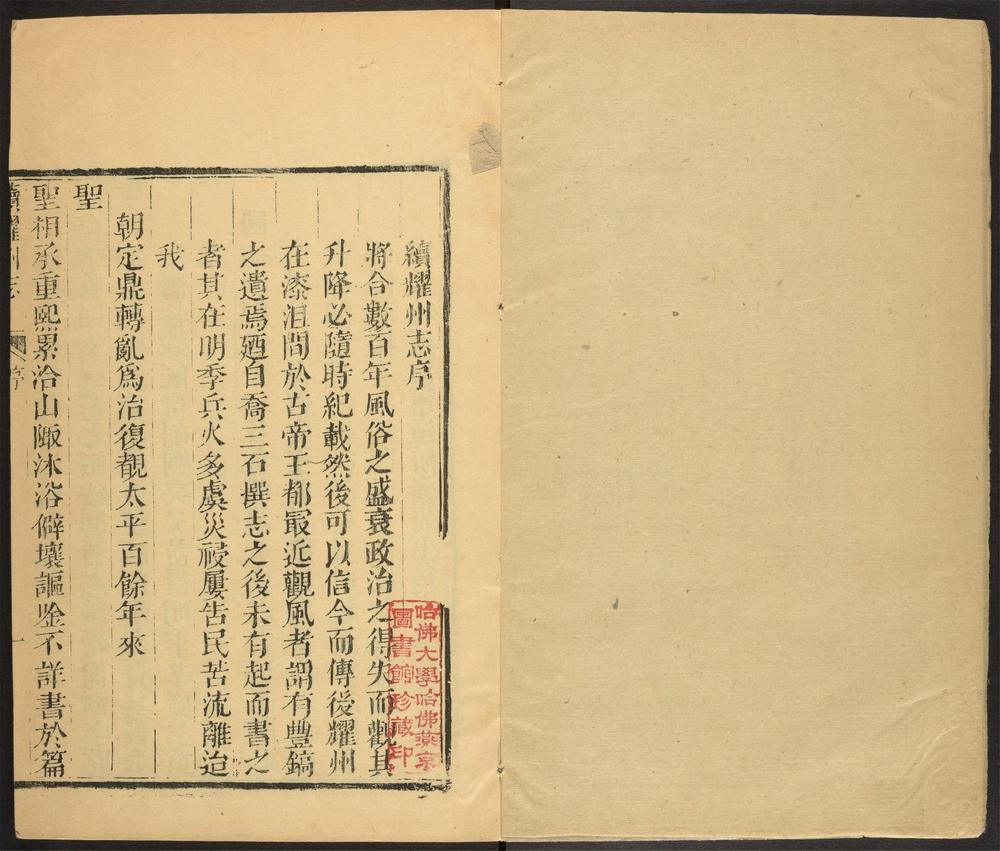 續耀州志序
將合數百年風俗之盛衰政治之得失而觀其
升降必隨時紀載然後可以信今而傳後耀州
在漆沮間於古帝王都最近觀風者謂有豐鎬
之遺焉廼自喬三石撰志之後未有起而書之
者其在明季兵火多虞災祲屢告民苦流離迨
我
朝定鼎轉亂為治復覩太平百餘年來
聖
聖相承重熈累洽山陬沐浴僻壤謳吟不詳書於篇
續耀州志
序
一
哈佛大學哈佛燕京
圖書館珍藏印